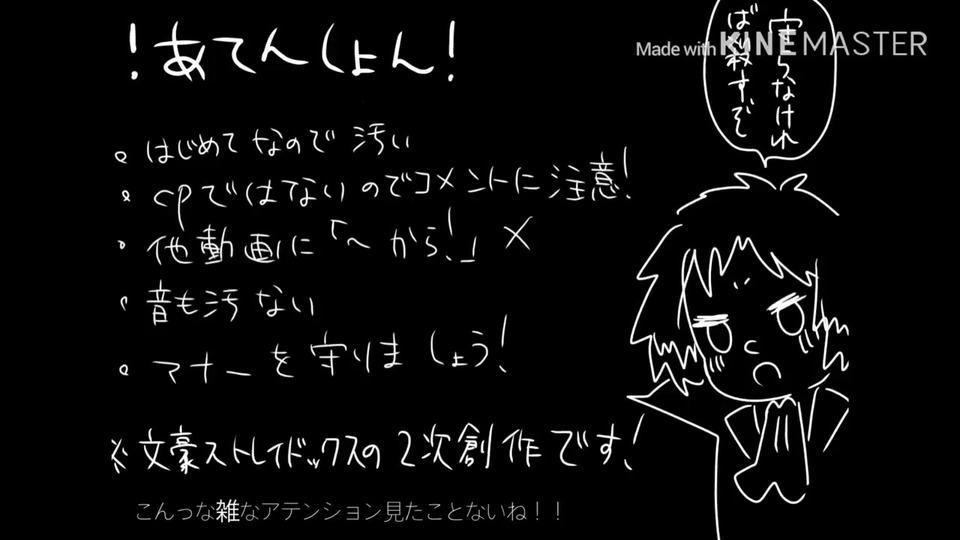 ！あてんしょん！
Made with KINEMASTER
守らなけれ
ば殺すぞ
。はじめてなので汚い
・cpではてないのでコメントに注意！
・他動画に「～から！」×
・音も汚ない
・マナーを守りましょう！
※文豪ストレイドックスの2次創作です！
こんっな雑なアテンション見たことないね！！